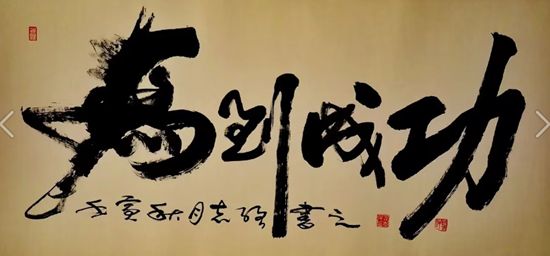 馬到成功
壬寅秋月志書之